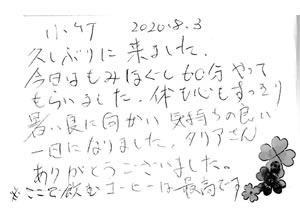 小竹 2020.8.3
久しぶりに来ました.
今日はもみほぐし60分やって
もらいました。体も心もすっきり
暑い夏に向かい気持ちの良い
一日になりました。タリアさん
ありがとうございました。
※ここで飲むコーヒーは最高です